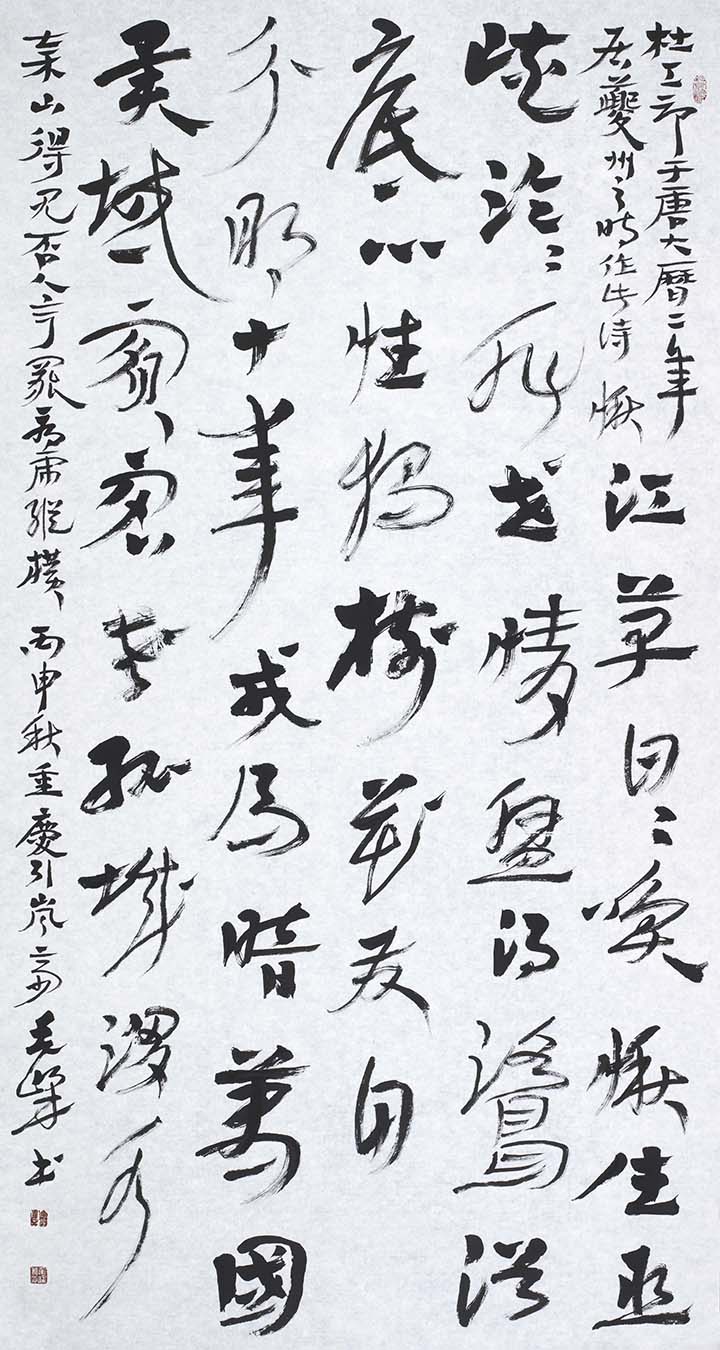 杜工部于唐大曆二年
居夔州之時作此詩 愁
江草日日喚愁生巫
峽泠泠非世情盤渦鷺浴
底心性獨樹花發自
分明十年戎馬暗萬國
異域賓客老孤城渭水
秦山得見否人今罷病虎縱橫 丙申秋重慶引嵐齋 书